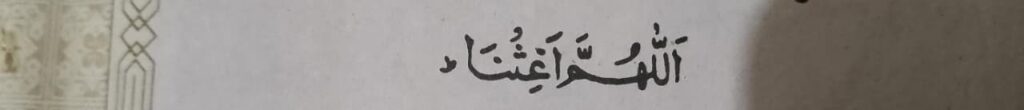 اَللّٰهُمَّ اَغِثْنَا ؕ